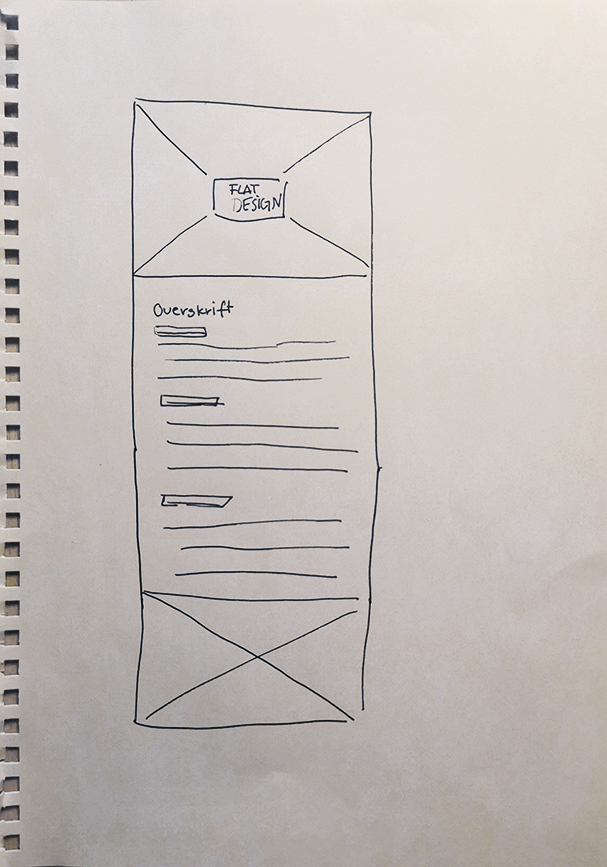 FLAT
DESIGN
Overskrift